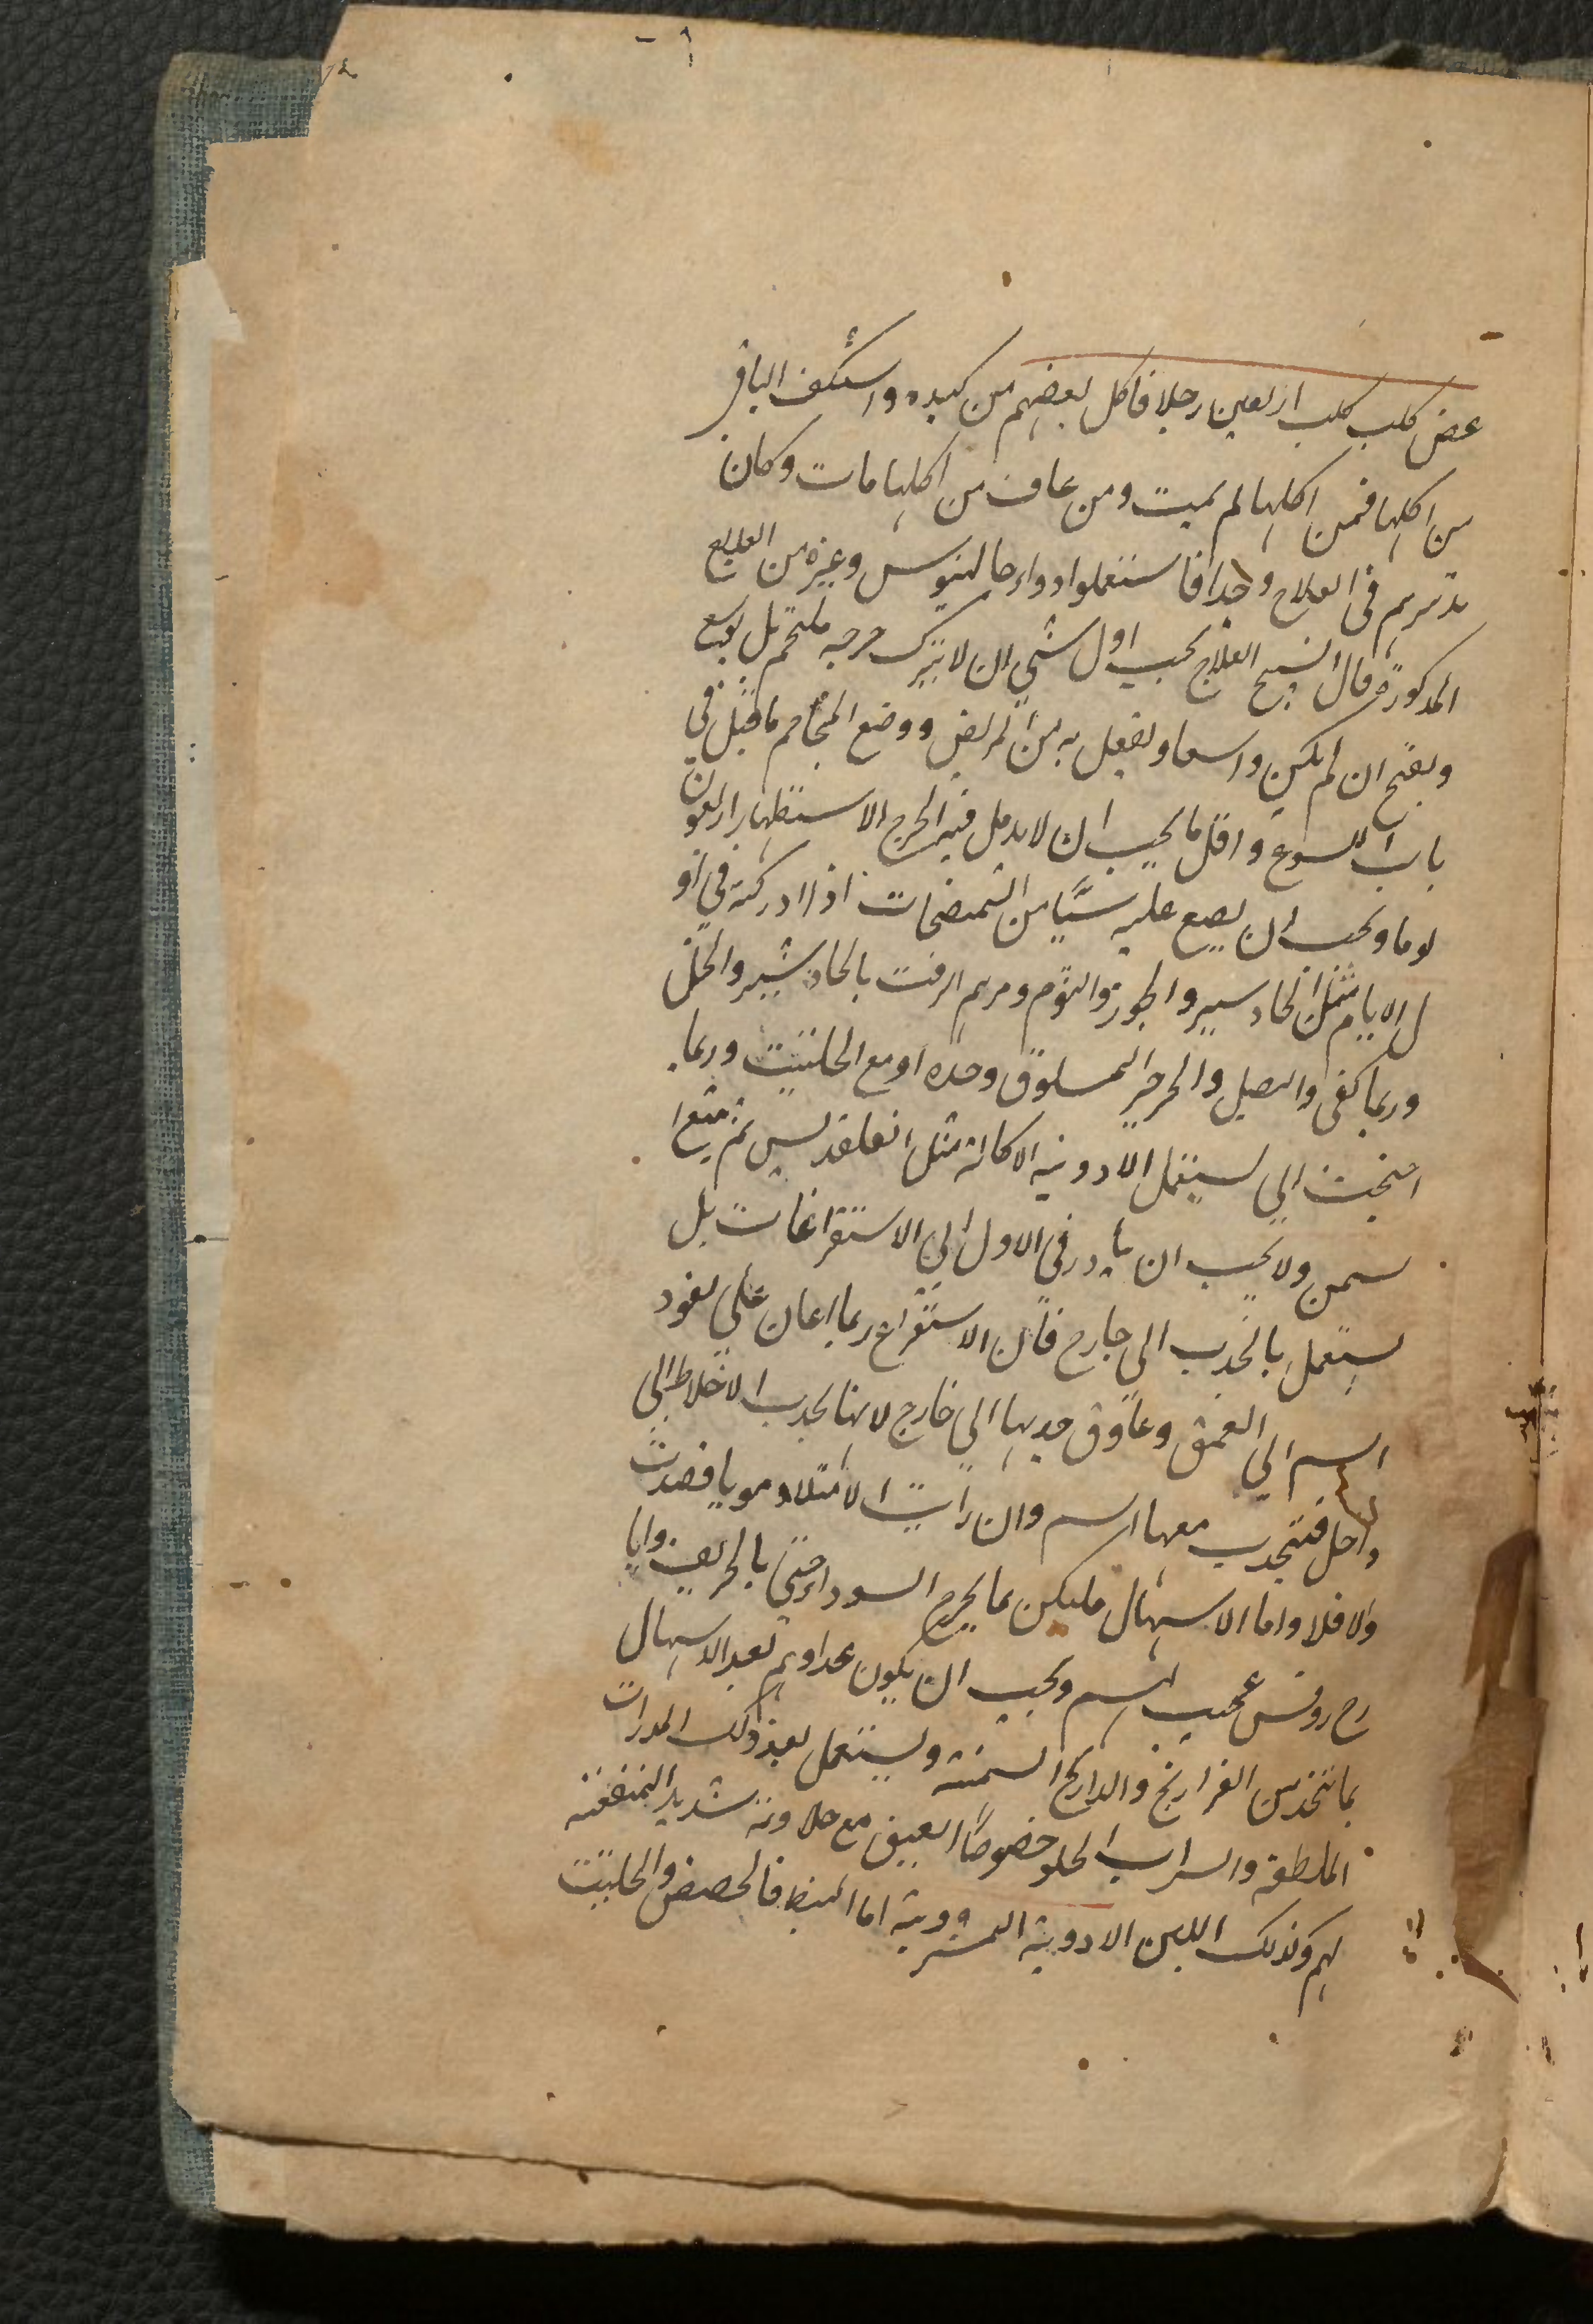 عض كلب كلب اربعين رجلا فاكل بعضهم من كبده واستنكف الباقر
من اكلها فمن اكلها لم يميت ومن عاف من اكلها مات وكان
تدبيرهم في العلاج واحدا فاستعملوا دواء جالينوس وغيره من العلاج
المذكورة قال الشيخ العلاج يجب اول شي ان لا يترك جرحه ملتحم بل يوسع
ويفتح ان لم يكن واسعا ويفعل به من المريض ووضع المحاجم ما قيل في
باب اللسوع واقل ما يجب ان لا يدمل فيه الجرح الاستظهار اربعون
يوما ويجب ان يضع عليه شيا من الممضات اذا ادركته في او
ل الايام مثل الجاوسير والجوز والثوم ومرهم الزفت بالجاوشير والخل
وربما كفى والبصل والجرجر المسلوق وحده او مع الحلتيت وربما
احتجت الي ستعمل الادوية الاكالة مثل القلقديس ثم يتبع
سمن ولا يجب ان يبادر في الاول الي الاستفراغات بل
يستعمل بالجذب الى خارج فان الاستفراغ ربما اعان على نفود
السم الي العمق وعاوق جذبها الي خارج لانها يجذب الاخلاط الى
داخل فتنجذب معها السم وان رايت الامتلا دمويا فصدت
والا فلا واما الاسهال فليكن بما يخرج السوداء حتى بالخربق وايا
رح روفس عجيب لهم ويجب ان يكون غداوهم بعد الاسهال
بما يتخذ من الفراريخ والدراريج السمنة ويستعمل بعد ذلك المدرات
الملطفة والشراب الحلو خصوصا العتيق مع حلاوته شديد المنفعة
لهم وكذلك اللبن الادوية المشروبة اما البسيط فالحضض والحلتيت